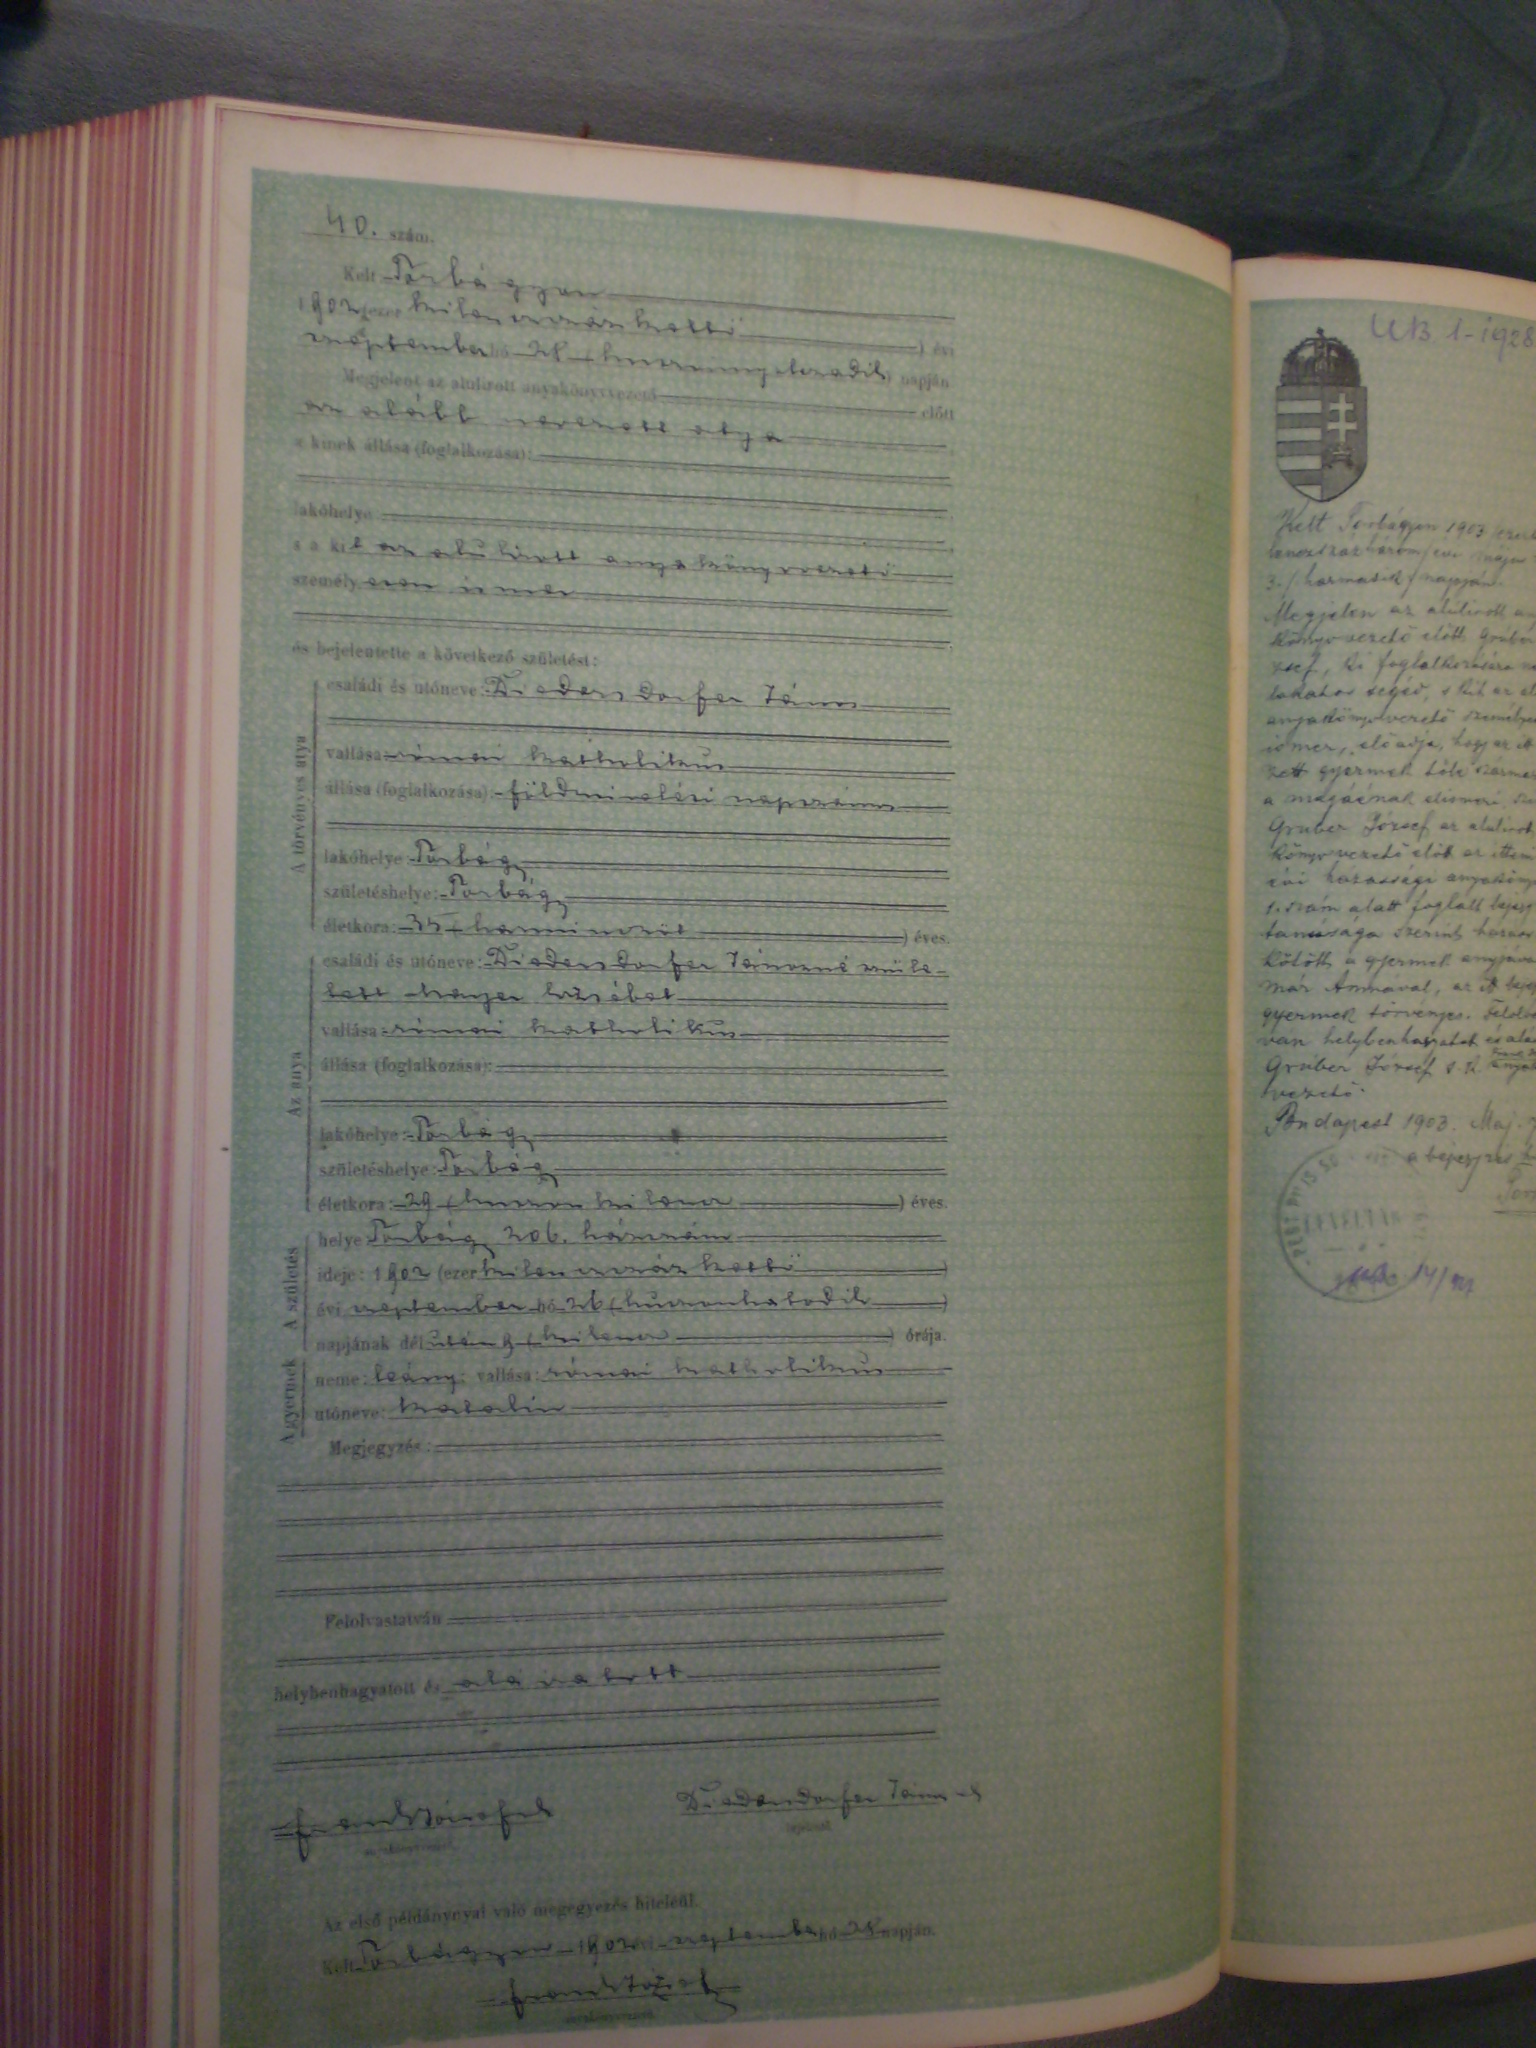 40. szám.
Kelt Torbágyon
1902 (ezer kilenczszáz kettő) évi
szeptember hó 28 (huszonnyolczadik) napján
Megjelent az alulírott anyakönyvvezető előtt
az alább nevezett atya
a kinek állása (foglalkozása):
lakóhelye
s a kit az alulírott anyakönyvvezető
személyesen ismer
és bejelentette a következő születést:
A törvényes atya
családi és utóneve: Diedersdorfer János
vallása: római katholikus
állása (foglalkozása): földmivelési napszámos
lakóhelye: Torbágy
születéshelye: Torbágy
életkora: 35 (harminczöt) éves.
Az anya
családi és utóneve: Diedersdorfer Jánosné szüle-
tett Erzsébet
vallása: római katholikus
állása (foglalkozása):
lakóhelye: Torbágy
születéshelye: Torbágy
életkora: 29 (huszonkilencz) éves.
A születés
helye: Torbágy 206. házszám
ideje: 1902 (ezer kilenczszáz kettő)
évi szeptember hó 26 (huszonhatodik)
napjának délután 9 (kilencz) órája.
A gyermek
neme: leány; vallása: római katholikus
utóneve: Katalin
Megjegyzés:
Felolvastatván
helybenhagyatott és aláíratott
Diedersdorfer János
Az első példánynyal való megegyezés hiteléül.
Kelt Torbágyon 1902 évi szeptember hó 28 napján.
anyakönyvvezető
UB 1-1928
Kelt Torbágyon 1903 /ezerki
lenczszázhárom/ évi május
3. / harmadik / napján.
Megjelen az alulirott any
könyvvezető előtt Gruber
zsef, ki foglalkozására
lakatos segéd, s kit az al
anyakönyvvezető személyes
ismer, előadja, hogy az itt
zett gyermek tőle szárma
a magáénak elismeri,
Gruber József az alulirot
könyvvezető előtt az itteni
évi házassági anyaköny
1. szám alatt foglalt bejegy
tanúsága szerint házass
kötött a gyermek anyjáva
már Annával, az itt bejegy
gyermek törvényes. Felolva
ván helybenhagyatott és alá
Gruber József s.k.
vezető.
Budapest 1903. Maj.
a bejegyzés